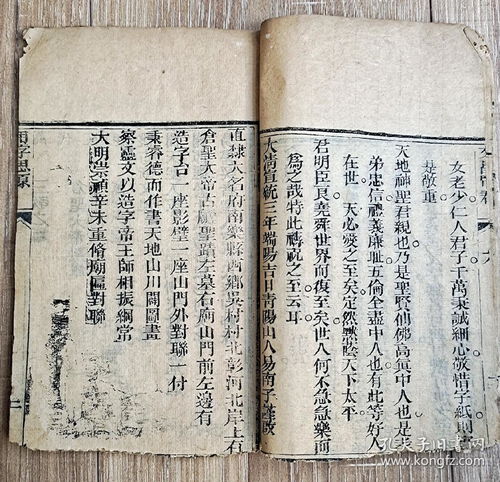 女老少仁人君子千萬秉誠細心敬惜字紙則
楚敬重
天地神聖君親也乃是聖賢仙佛高眞中人也夫
弟忠信禮義廉耻五倫全盡中人也有此等好人
在世天必愛之至矣定然默陰天下太平
君明臣良堯舜世界而復至矣世人何不急急樂而
爲之哉特此禱祝之至云耳
大淸宣統三年端陽吉日青陽山人易南子謹改
直隸大名府南樂縣西鄉吳村村北彰河北岸上有
倉聖大帝古廟聖蹟左墓右廟山門前左邊有
造字台一座影壁一座山門外對聯一付
秉睿德而作書天地山川開圖畫
察靈文以造字帝王師相振綱常
大明崇禎辛未重脩廟區對聯
二
孔夫子旧书网
www.kongfz.com